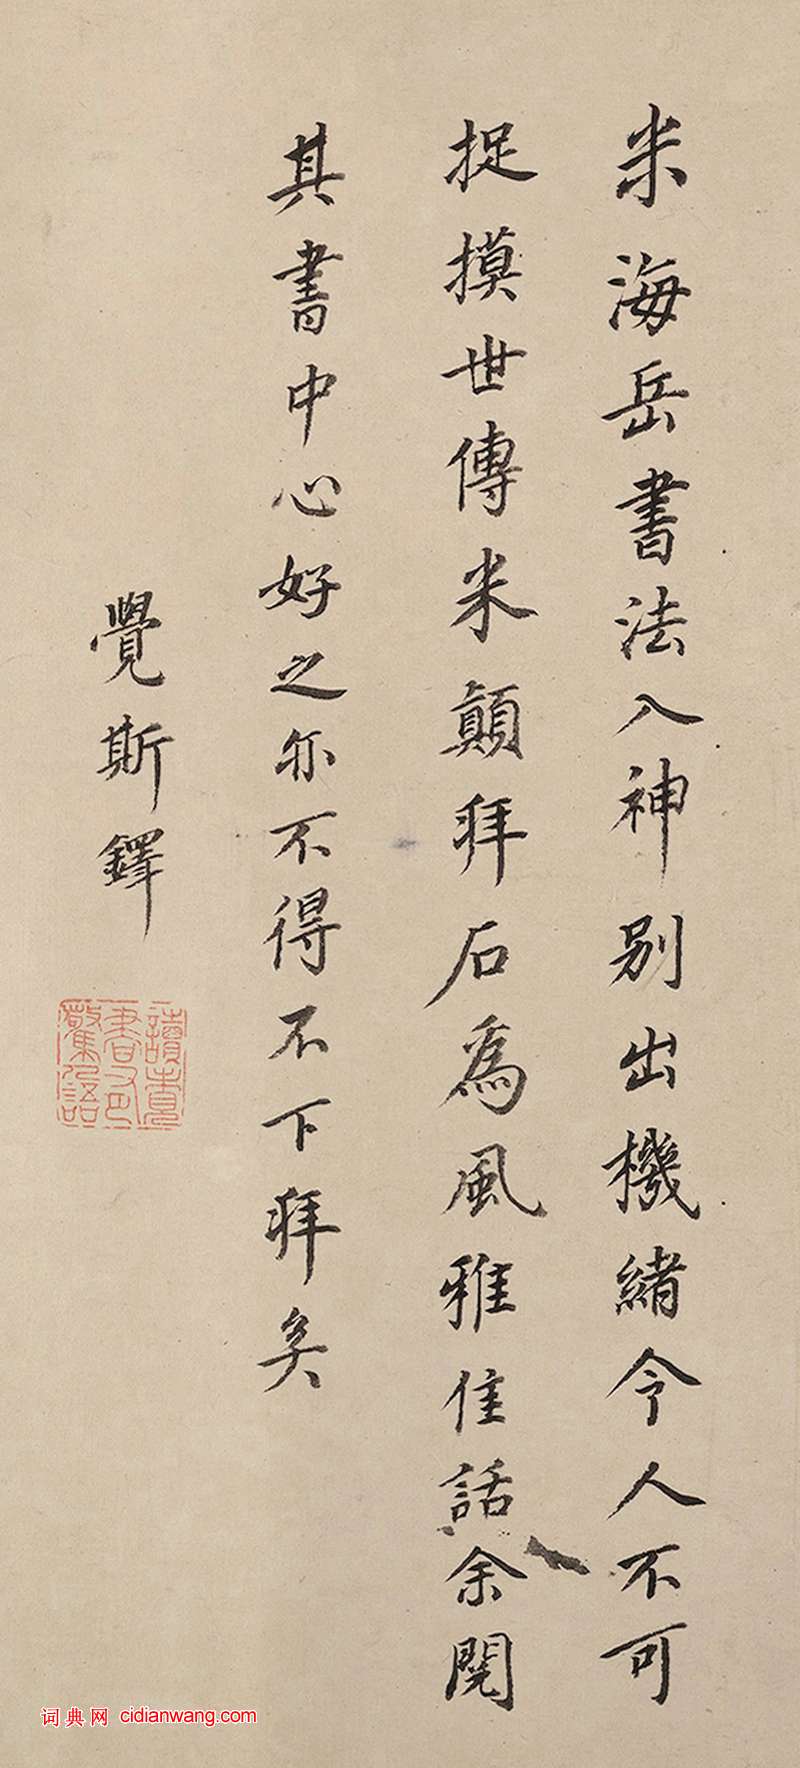 米海岳書法入神別出機緒令人不可
捉摸世傳米顛拜石為風雅佳話余閱
其書中心好之亦不得不下拜矣
覺斯鐸
讀書有驚人語
词典网 cidianwang.com